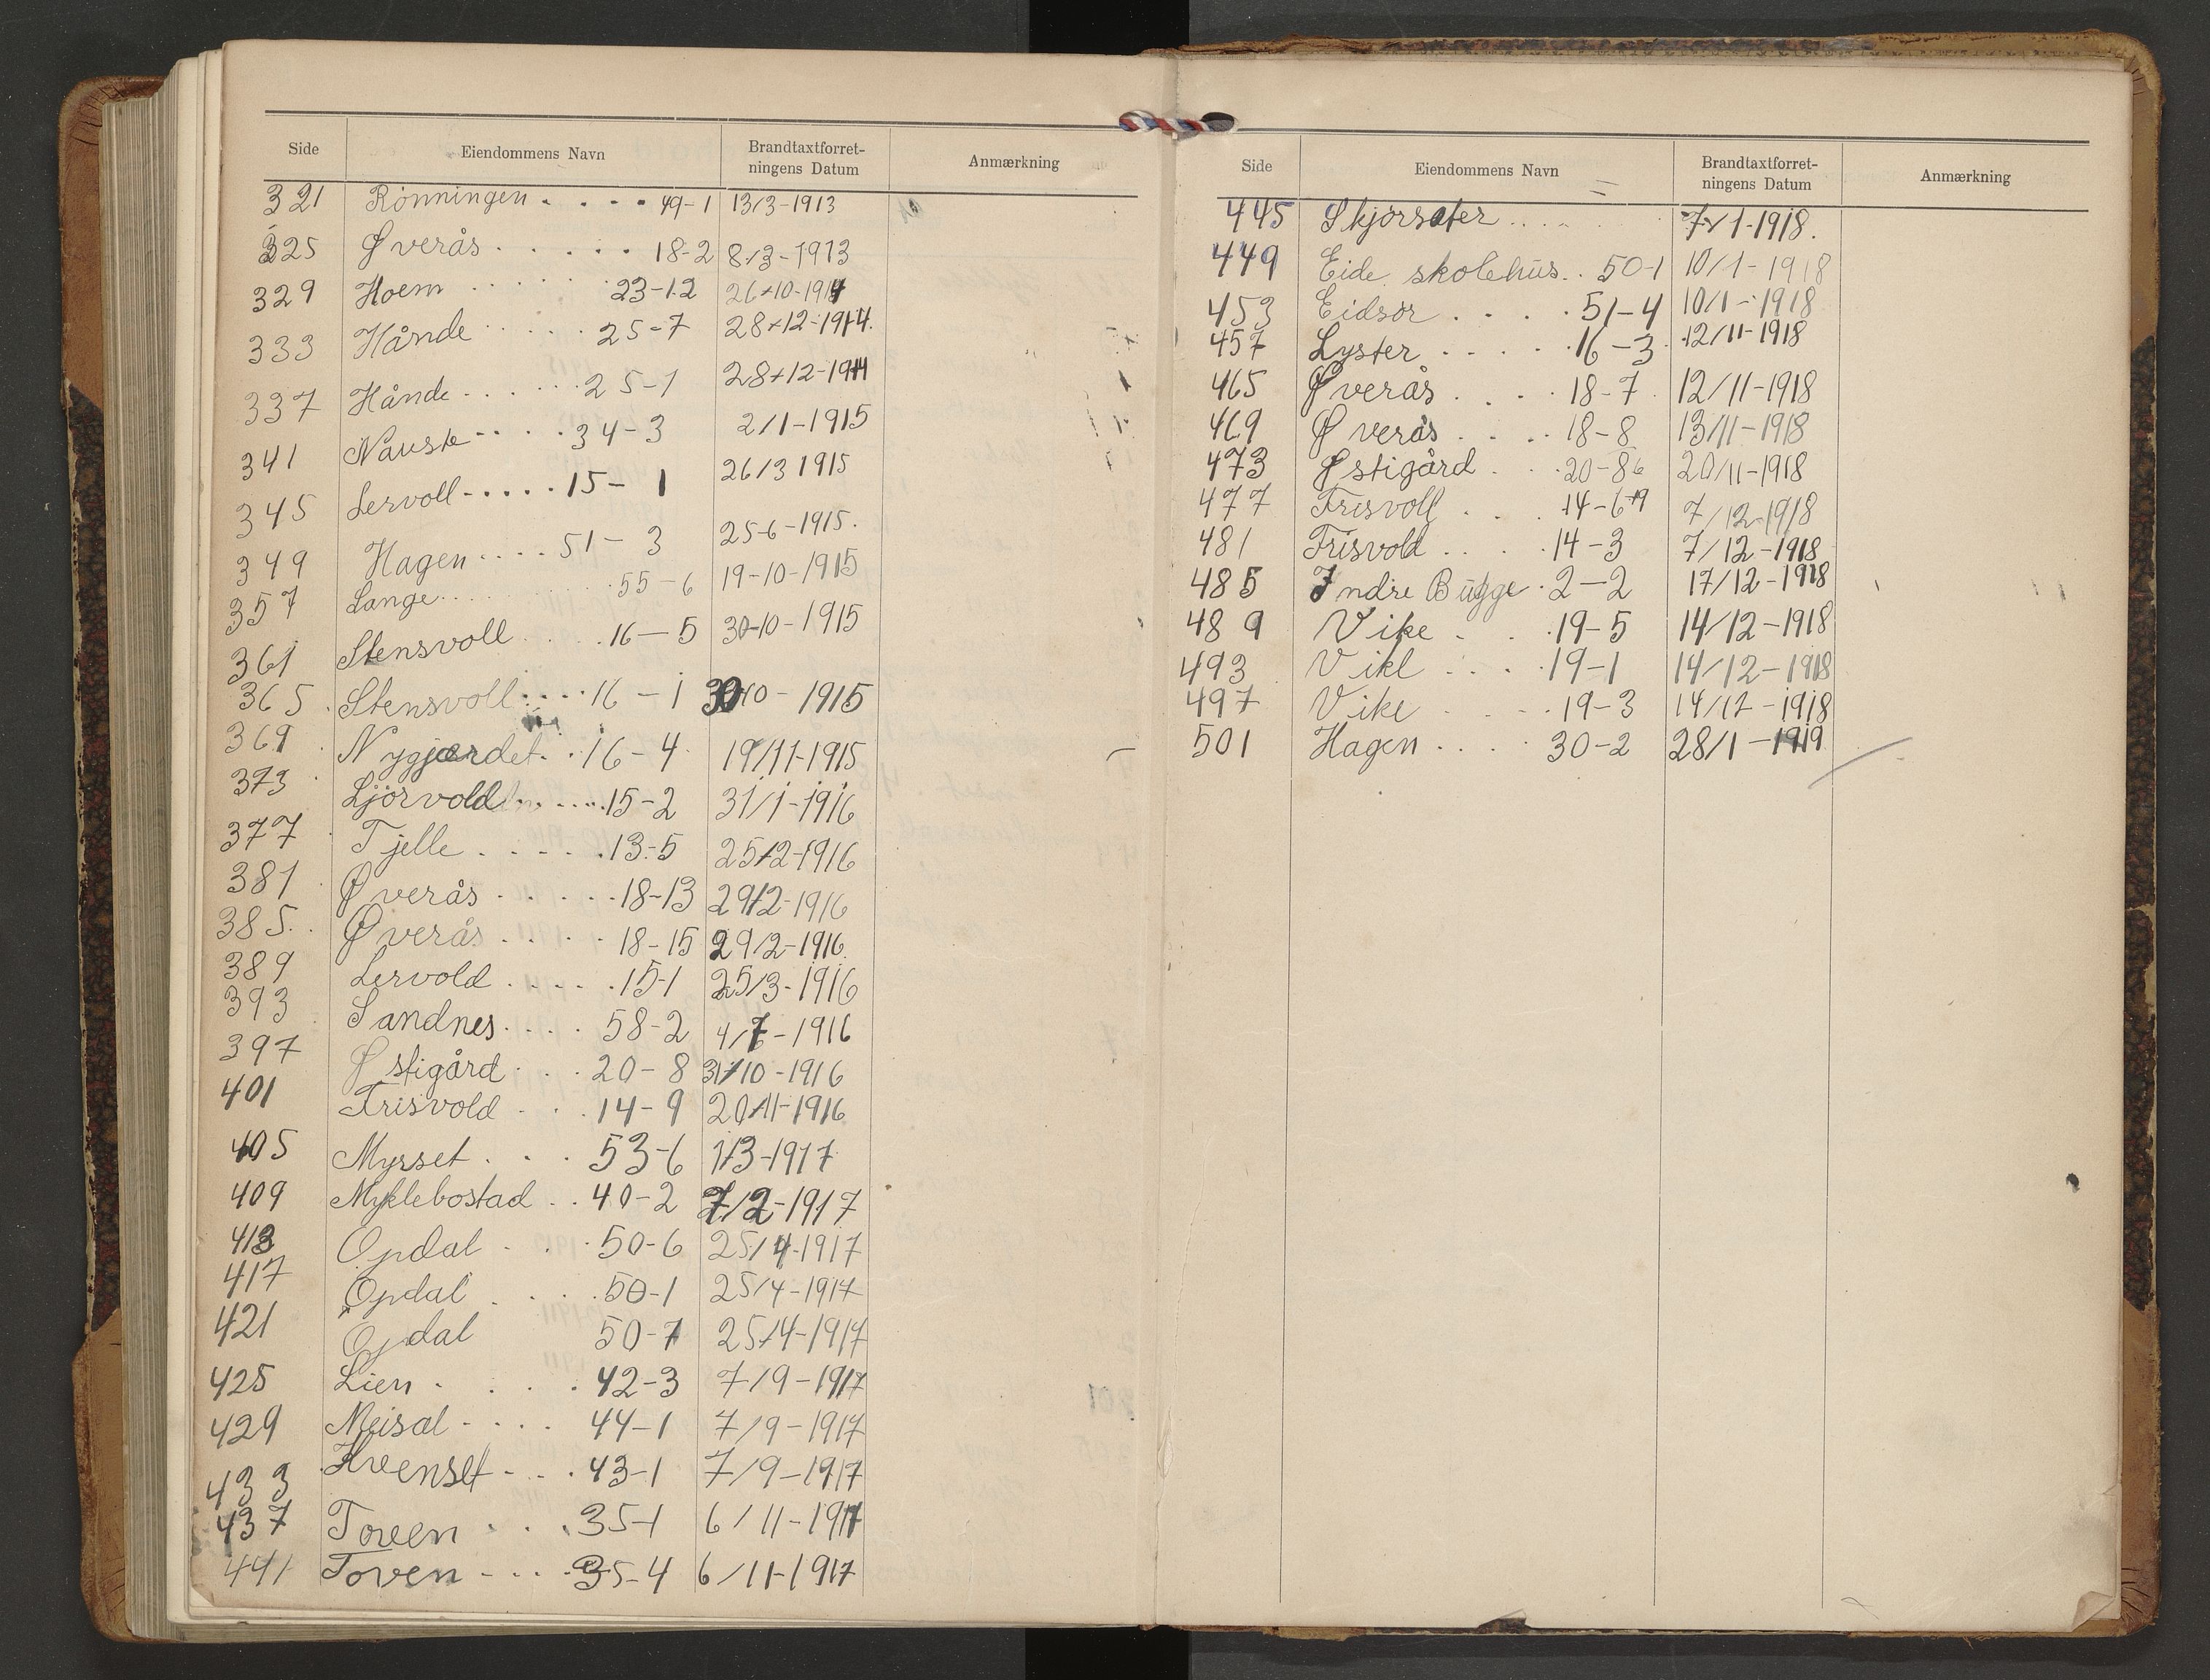 Side Eiendommens Navn Brandtaxtforret-
ningens Datum Anmærkning
321 Rönningen . . . . 49-1 13/3-1913
325 Øverås . . . . . 18-2 8/3-1913
329 Hoem . . . . . 23-12 26/10-1914
333 Hånde . . . . . 25-7 28/12-1914.
337 Hånde . . . . . 25-1 28/12-1914
341 Nauste . . . . 34-3 2/1-1915
345 Lervoll . . . . 15-1 26/3 1915
349 Hagen . . . . 51-3 25-6-1915.
357 Lange . . . . 55-6 19-10-1915
361 Stensvoll . . . . 16-5 30-10-1915
365 Stensvoll . . . . 16-1 30/10-1915
369 Nygjærdet . . 16-4 19/11-1915
373 Ljörvold . . . . 15-2 31/1-1916
377 Tjelle . . . . . 13-5 25/2-1916
381 Øverås . . . . . 18-13 29/2-1916
385. Øverås . . . . . 18-15 29/2-1916
389 Lervold . . . . . 15-1 25/3-1916
393 Sandnes . . . . 58-2 4/7-1916
397 Østigård . . . 20-8 31/10-1916
401 Frisvold . . . 14-9 20/11-1916
405 Myrset . . . 53-6 1/3-1917
409 Myklebostad . . 40-2 7/2-1917
413 Opdal . . . 50-6 25/4-1917
417 Opdal . . . . 50-1 25/4-1917
421 Opdal 50-7 25/4-1917
425 Lien . . . . 42-3 7/9-1917
429 Meisal . . . . 44-1 7/9-1917
433 Kvenset . . . 43-1 7/9-1917
437 Toven . . . 35-1 6/11-1917
441 Toven . . . . 35-4 6/11-1917
Side Eiendommens Navn Brandtaxtforret-
ningens Datum Anmærkning
445 Skjörsæter . . . . 7/1-1918.
449 Eide skolehus . . 50-1 10/1-1918
453 Eidsör . . . . 51-4 10/1-1918
457 Lyster . . . . . 16-3 12/11-1918
465 Øverås . . . . 18-7 12/11-1918
469 Øverås . . . . 18-8 13/11-1918
473 Østigård . . . 20-86 20/11-1918
477 Frisvoll . . . 14-6+9 7/12-1918
481 Frisvold . . . . 14-3 7/12-1918
485 Indre Bugge . 2-2 17/12-1918
489 Vike . . . 19-5 14/12-1918
493 Vike . . . . 19-1 14/12-1918
497 Vike . . . 19-3 14/12-1918
501 Hagen . . . . 30-2 28/1-1919